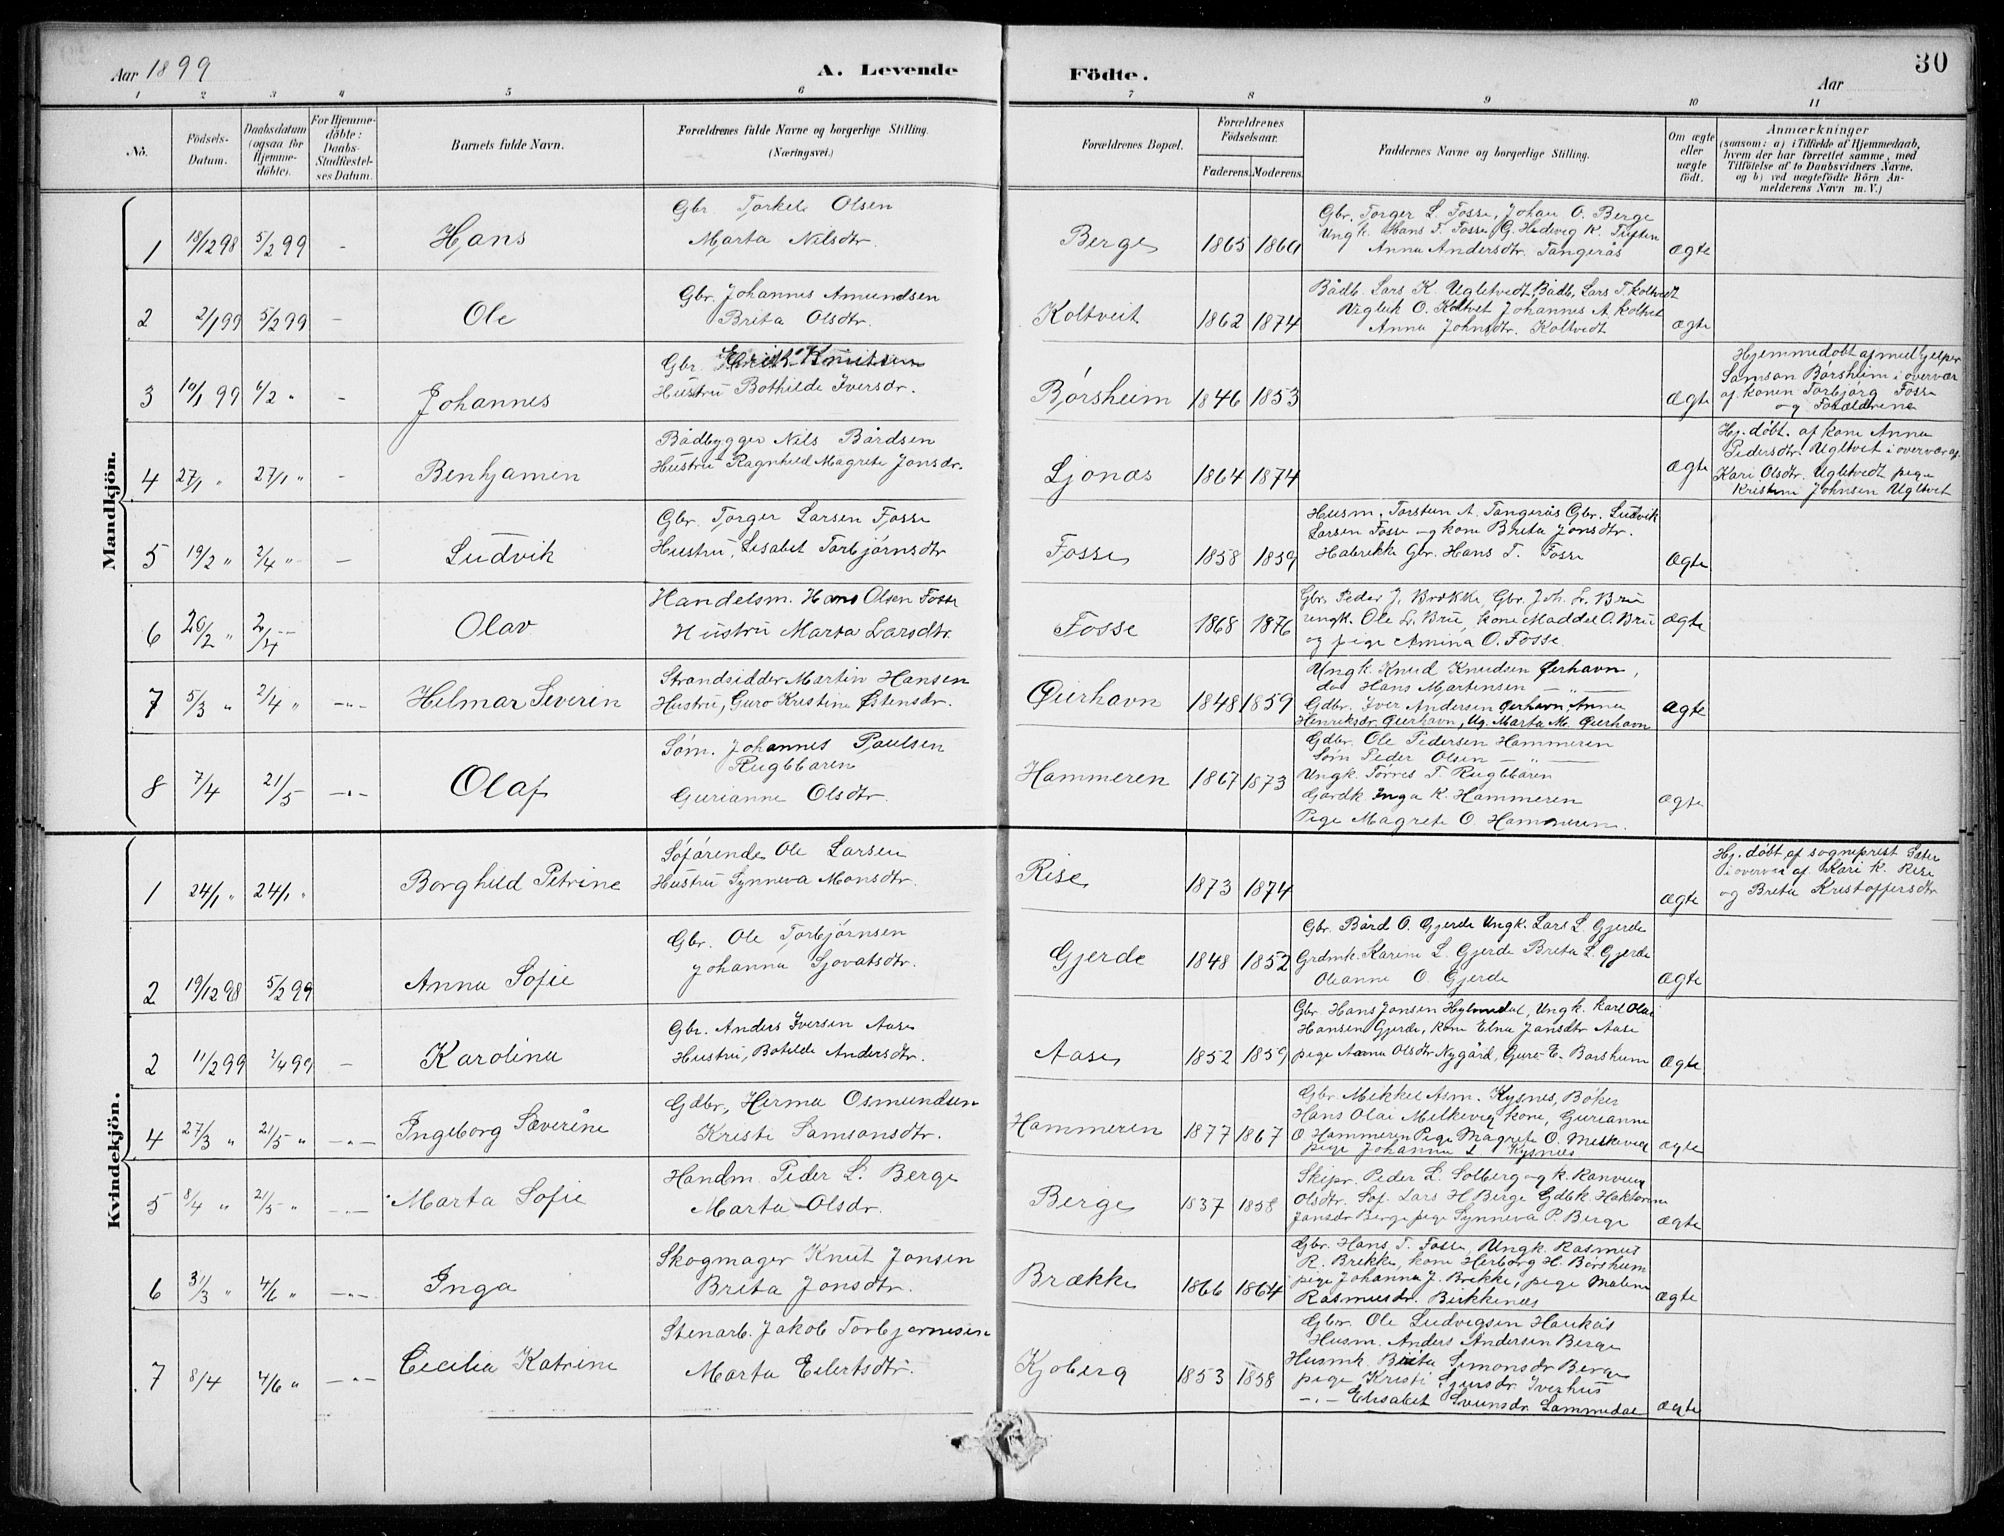 30
Aar 1899 A. Levende Födte. Aar
1 2 3 4 5 6 7 8 9 10 11
No.
Födsels-
Datum.
Daabsdatum
(ogsaa for
Hjemme-
döbte).
For Hjemme-
döbte:
Daabs-
Stadfæstel-
ses Datum.
Barnets fulde Navn.
Forældrenes fulde Navne og borgerlige Stilling.
(Næringsvei.)
Forældrenes Bopæl.
Forældrenes
Födselsaar.
Faderens. Moderens.
Faddernes Navne og borgerlige Stilling.
Om ægte
eller
uægte
født.
Anmærkninger
(saasom: a) i Tilfælde af Hjemmedaab,
hvem der har forrettet samme, med
Tilföielse af to Daabsvidners Navne.
og b) ved uægtefödte Börn An-
melderens Navn m. V.)
Mandkjön.
1 18/12 98 5/2 99 - Hans
Gbr. Torkel Olsen
Marta Nilsdtr.
Berge 1865 1866
Gbr. Torger L. Fosse, Johan O. Berge
Ungk. Hans T. Fosse, G. Hedvig K. Triften
Anna Andersdtr. Tangerås
ægte
2 2/1 99 5/2 99 - Ole
Gbr. Johannes Amundsen
Brita Olsdtr.
Koltveit 1862 1874
Bådb. Lars K. Ugletvedt, Bådb. Lars T. Koltvedt
Vigleik O. Koltvet Johannes A. Koltvet
Anna Johnsdtr. Koltvedt
ægte
3 10/1 99 6/2 " - Johannes
Gbr. Erik Knutsen
Hustru Bothilde Iversdr.
Børsheim 1846 1853
ægte
Hjemmedøbt af medhjelper
Samson Børsheim i overvær
af konen Torbjørg Fosse
og Forældrene
4 27/1 " 27/1 " - Benhjamen
Bådbygger Nils Bårdsen
Hustru Ragnhild Magrete Jonsdr.
Ljonæs 1864 1874
ægte
Hj. døbt. af kone Anna
Pedersdtr. Ugltvet i overvær af
Kari Olsdtr. Ugletvedt pige
Kristine Johnsen Ugltvet
5 19/2 " 2/4 " - Ludvik
Gbr. Torger Larsen Fosse
Hustru, Lisabet Torbjørnsdtr
Fosse 1858 1859
Husm. Torstein A. Tangerås Gbr. Ludvik
Larsen Fosse og kone Brita Jonsdtr.
Halrekke Gbr. Hans T. Fosse
ægte
6 26/2 " 2/4 - Olav
Handelsm. Hans Olsen Fosse
Hustru Marta Larsdtr.
Fosse 1868 1876
Gbr. Peder J. Brekke, Gbr. Joh. L. Bru
ungk. Ole L. Bru, kone Maddel O. Bru
og pige Amina O. Fosse
ægte
7 5/3 " 2/4 " -"- Helmar Severin
Strandsidder Martin Hansen
Hustru, Guro Kristine Østensdr.
Øierhavn 1848 1859
Ungk. Knud Knudsen Øierhavn,
do Hans Martensen - " -
Gdbr. Iver Andersen Øierhavn, Anna
Henriksdr. Øierhavn, Ug. Marta M. Øierhavn
ægte
8 7/4 21/5 -"- Olaf
Søm. Johannes Paulsen
Rugbbaren
Gurianne Olsdtr.
Hammeren 1867 1873
Gdbr. Ole Pedersen Hammeren
Søm Peder Olsen - " -
Ungk. Tørres T. Rugbbåren
Gårdk Inga K. Hammeren
Pige Magrete O. Hammeren.
ægte
Kvindekjön.
1 24/1 " 24/1 " Borghild Petrine
Søfårende Ole Larsen
Hustru Synneva Monsdtr.
Rise 1873 1874
ægte
Hj. døbt af sogneprest Sæter
i overvær af Kari K. Rise
og Brita Kristoffersdtr
2 19/12 98 5/2 99 Anna Sofie
Gbr. Ole Torbjørnsen
Johanna Sjovatsdtr.
Gjerde 1848 1852
Gbr. Bård O. Gjerde Ungk. Lars L. Gjerde
Grdmk. Karine L. Gjerde Brita L. Gjerde
Oleanne O. Gjerde
ægte
2 11/2 99 2/4 99 - Karolina
Gbr. Anders Iversen Aase
Hustru, Botilde Andersdtr.
Aase 1852 1859
Gbr. Hans Jansen Hylmedal, Ungk. Karl Olai
Hansen Gjerde, kone Elna Jansdtr Aase
pige Anna Olsdtr Nygård, Guro E. Borsheim
ægte
4 27/3 " 21/5 " -"- Ingeborg Sæverine
Gdbr, Herma Osmundsen
Kristi Samsonsdtr.
Hammeren 1877 1867
Gbr. Mikkel Asm. Kysnes, Bøker
Hans Olai Melkevig kone, Gurianne
O. Hammeren Pige Magrete O. Melkevig
pige Johanna L Kysnes
ægte
5 8/4 " 21/5 " -"- Marta Sofie
Handm. Peder L. Berge
Marta Olsdr.
Berge 1837 1858
Skipr. Peder L. Solberg og k. Ranveig
Olsdtr. Søf. Lars H. Berge Gdbk Haktorine
Jansdr Berge pige Synneva P. Berge
ægte
6 31/3 " 4/6 " -"- Inga
Skogmager Knut Jonsen
Brita Jonsdtr.
Brække 1866 1864
Gbr. Hans T. Fosse, Ungk. Rasmus
R. Brekke, kone Herborg H. Børsheim
pige Johanna J. Brekke, pige Malene
Rasmusdr. Birkkenæs
ægte
7 8/4 4/6 " -"- Cecilia Katrine
Stenarb. Jakob Torbjørnesen
Marta Eilertsdtr.
Kjoberg 1853 1858
Gbr. Ole Ludvigsen Haukås
Husm. Anders Andersen Berge
Husmk Brita Simonsdr Berge
pige Kristi Sjursdr Iverhus
-"- Elisabet Svensdr Lammedal
ægte